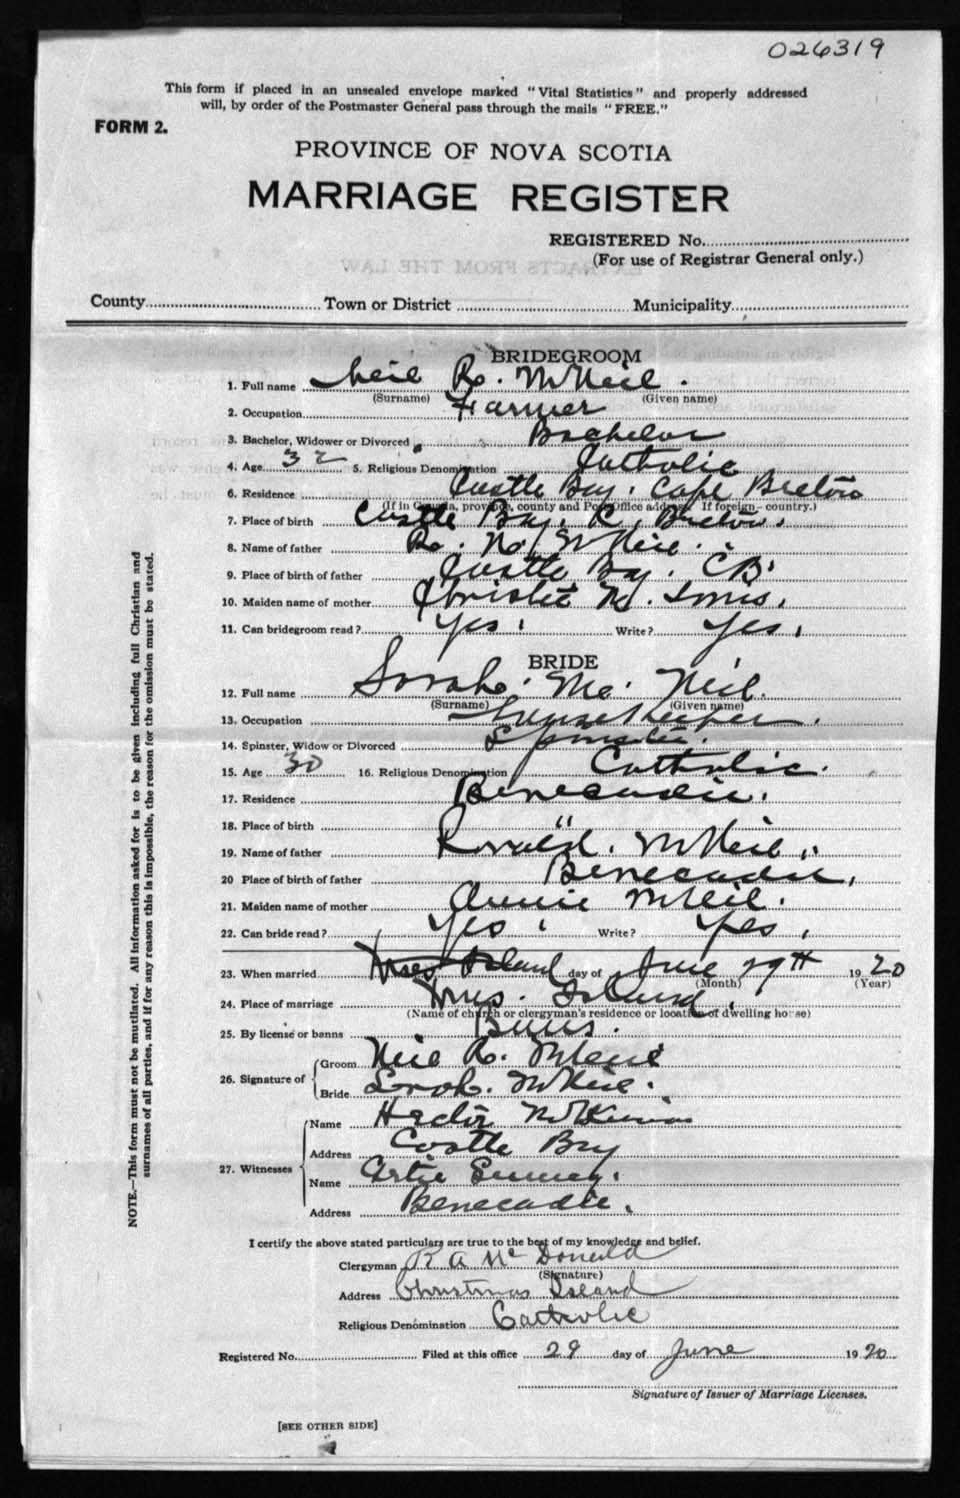 026319
This form if placed in an unsealed envelope marked "Vital Statistics" and properly addressed
will, by order of the Postmaster General pass through the mails "FREE."
FORM 2.
PROVINCE OF NOVA SCOTIA
MARRIAGE REGISTER
REGISTERED No.
(For use of Registrar General only.)
EXTRACTS FROM THE LAW
County Town or District Municipality
BRIDEGROOM
1. Full name Neil R. McNeil.
(Surname) (Given name)
2. Occupation Farmer
3. Bachelor, Widower or Divorced Bachelor
4. Age 32 5. Religious Denomination Catholic
6. Residence Castle Bay, Cape Breton
(If in Canada, province, county and Post Office address. If foreign—country.)
7. Place of birth Castle Bay, Breton.
8. Name of father McNeil.
9. Place of birth of father Castle Bay. CB.
10. Maiden name of mother
11. Can bridegroom read? Yes. Write? Yes.
BRIDE
12. Full name Sarah. Mc. Neil.
(Surname) (Given name)
13. Occupation
14. Spinster, Widow or Divorced Spinster.
15. Age 30 16. Religious Denomination Catholic.
17. Residence Benecadie.
18. Place of birth "
19. Name of father Ronald. McNeil.
20 Place of birth of father Benecadie.
21. Maiden name of mother Annie McNeil.
22. Can bride read? Yes. Write? Yes.
23. When married day of June 29th 1920
(Month) (Year)
24. Place of marriage Xmas. Island.
(Name of church or clergyman's residence or location of dwelling house)
25. By license or banns Banns.
26. Signature of Groom Neil R. McNeil
Bride Sarah. McNeil.
27. Witnesses Name Hector McKinnon
Address Castle Bay
Name Artie
Address Benecadie.
NOTE.—This form must not be mutilated. All information asked for is to be given including full Christian and
surnames of all parties, and if for any reason this is impossible, the reason for the omission must be stated.
I certify the above stated particulars are true to the best of my knowledge and belief.
Clergyman R A McDonald
(Signature)
Address Christmas Island
Religious Denomination Catholic
Registered No. Filed at this office 29 day of June 1920
Signature of Issuer of Marriage Licenses.
[SEE OTHER SIDE]